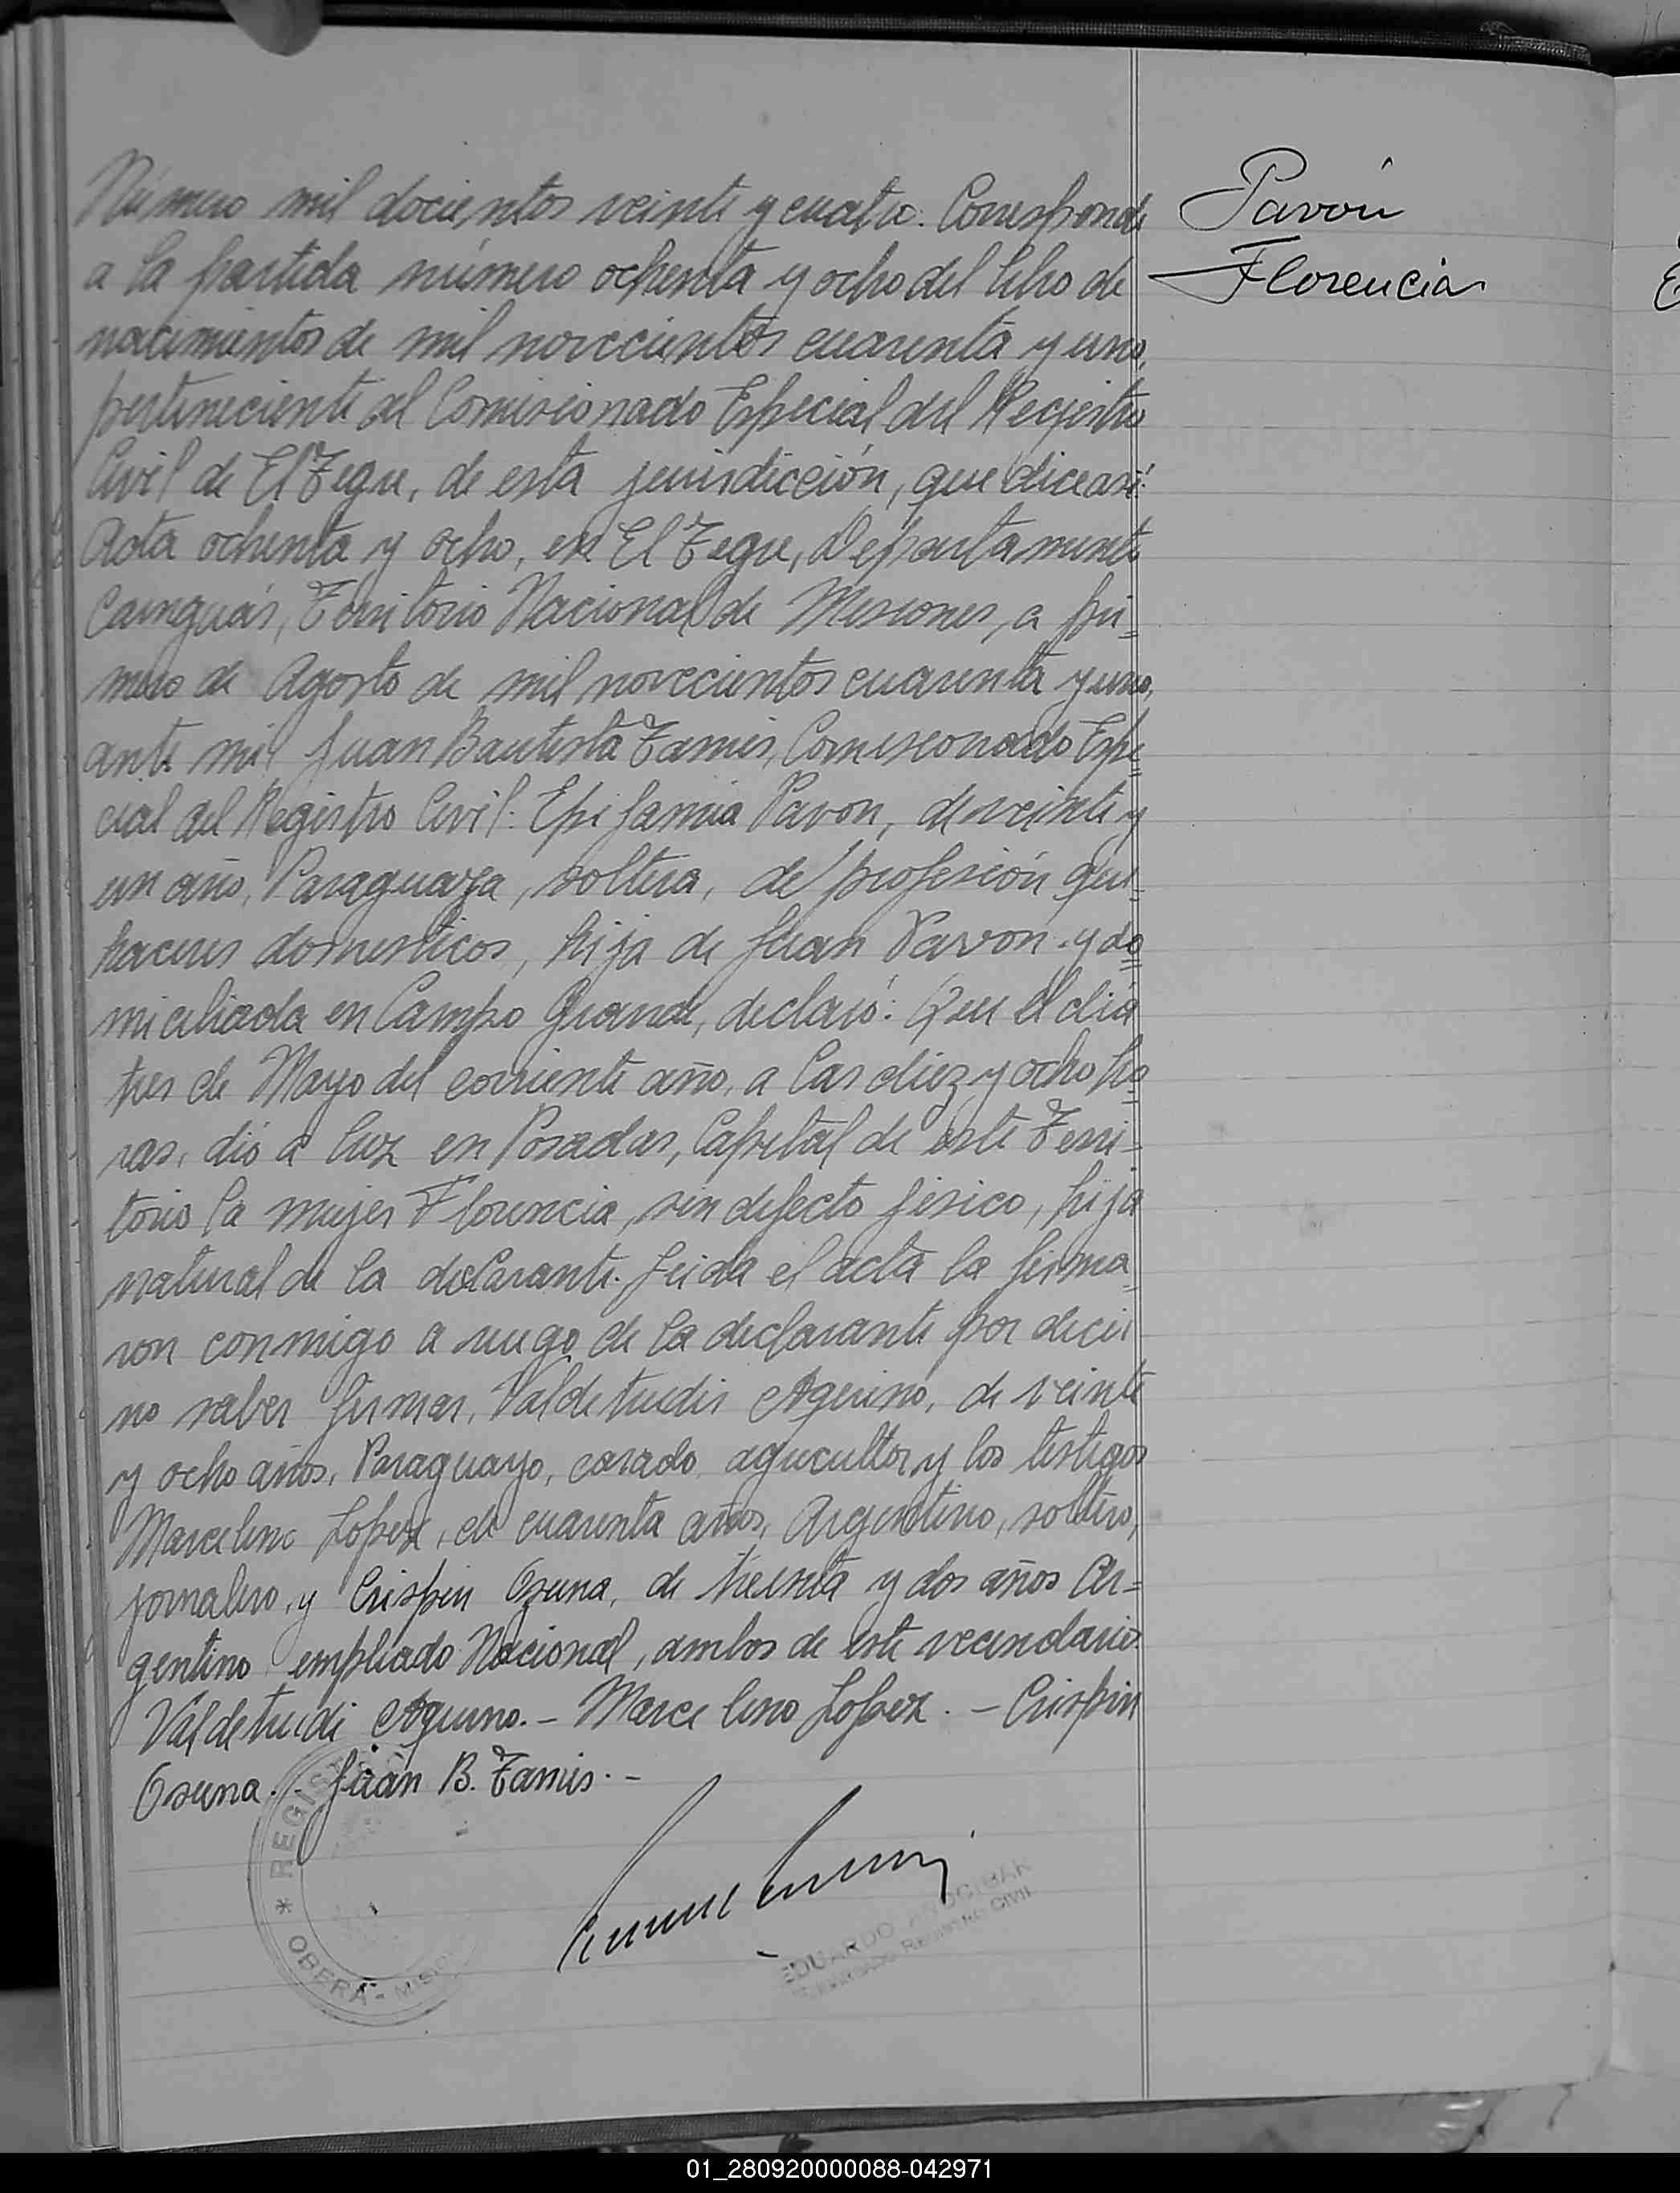 Número mil docientos veinte y cuatro. Corresponde
a la partida número ochenta y ocho del libro de
nacimientos de mil novecientos cuarenta y uno,
perteneciente al Comisionado Especial del Registro
Civil de El Tegre, de esta jurisdicción, que dice así:
Acta ochenta y ocho, en El Tegre, Departamento
Cainguás, Territorio Nacional de Misiones, a pri=
mero de Agosto de mil novecientos cuarenta y uno,
ante mi Juan Bautista Tamis, Comisionado Espe=
cial del Registro Civil: Epifania Pavon, de veinte y
un año, Paraguaya, soltera, de profesión que-
haceres domesticos, hija de Juan Pavon y do=
miciliada en Campo Grande, declaró: Que el día
tres de Mayo del corriente año, a las diez y ocho ho=
ras, dió a luz en Posadas, Capital de este Terri-
torio la mujer Florencia, sin defecto físico, hija
natural de la declarante. Leida el acta la firma-
ron conmigo a ruego de la declarante por decir
no saber firmar, Valdetrudis Aquino, de veinte
y ocho años, Paraguayo, casado agricultor y los testigos
Marcelino Lopez, de cuarenta años, Argentino, soltero,
jornalero, y Crispin Osuna, de treinta y dos años Ar=
gentino empleado Nacional, ambos de este vecindario.
Valdetrudi Aquino. - Marcelino Lopez. - Crispin
Osuna. - Juan B. Tamis. -
Pavón
Florencia
* REGIS
OBERÁ - MISIO
EDUARDO
REGISTRO CIVIL
01_280920000088-042971